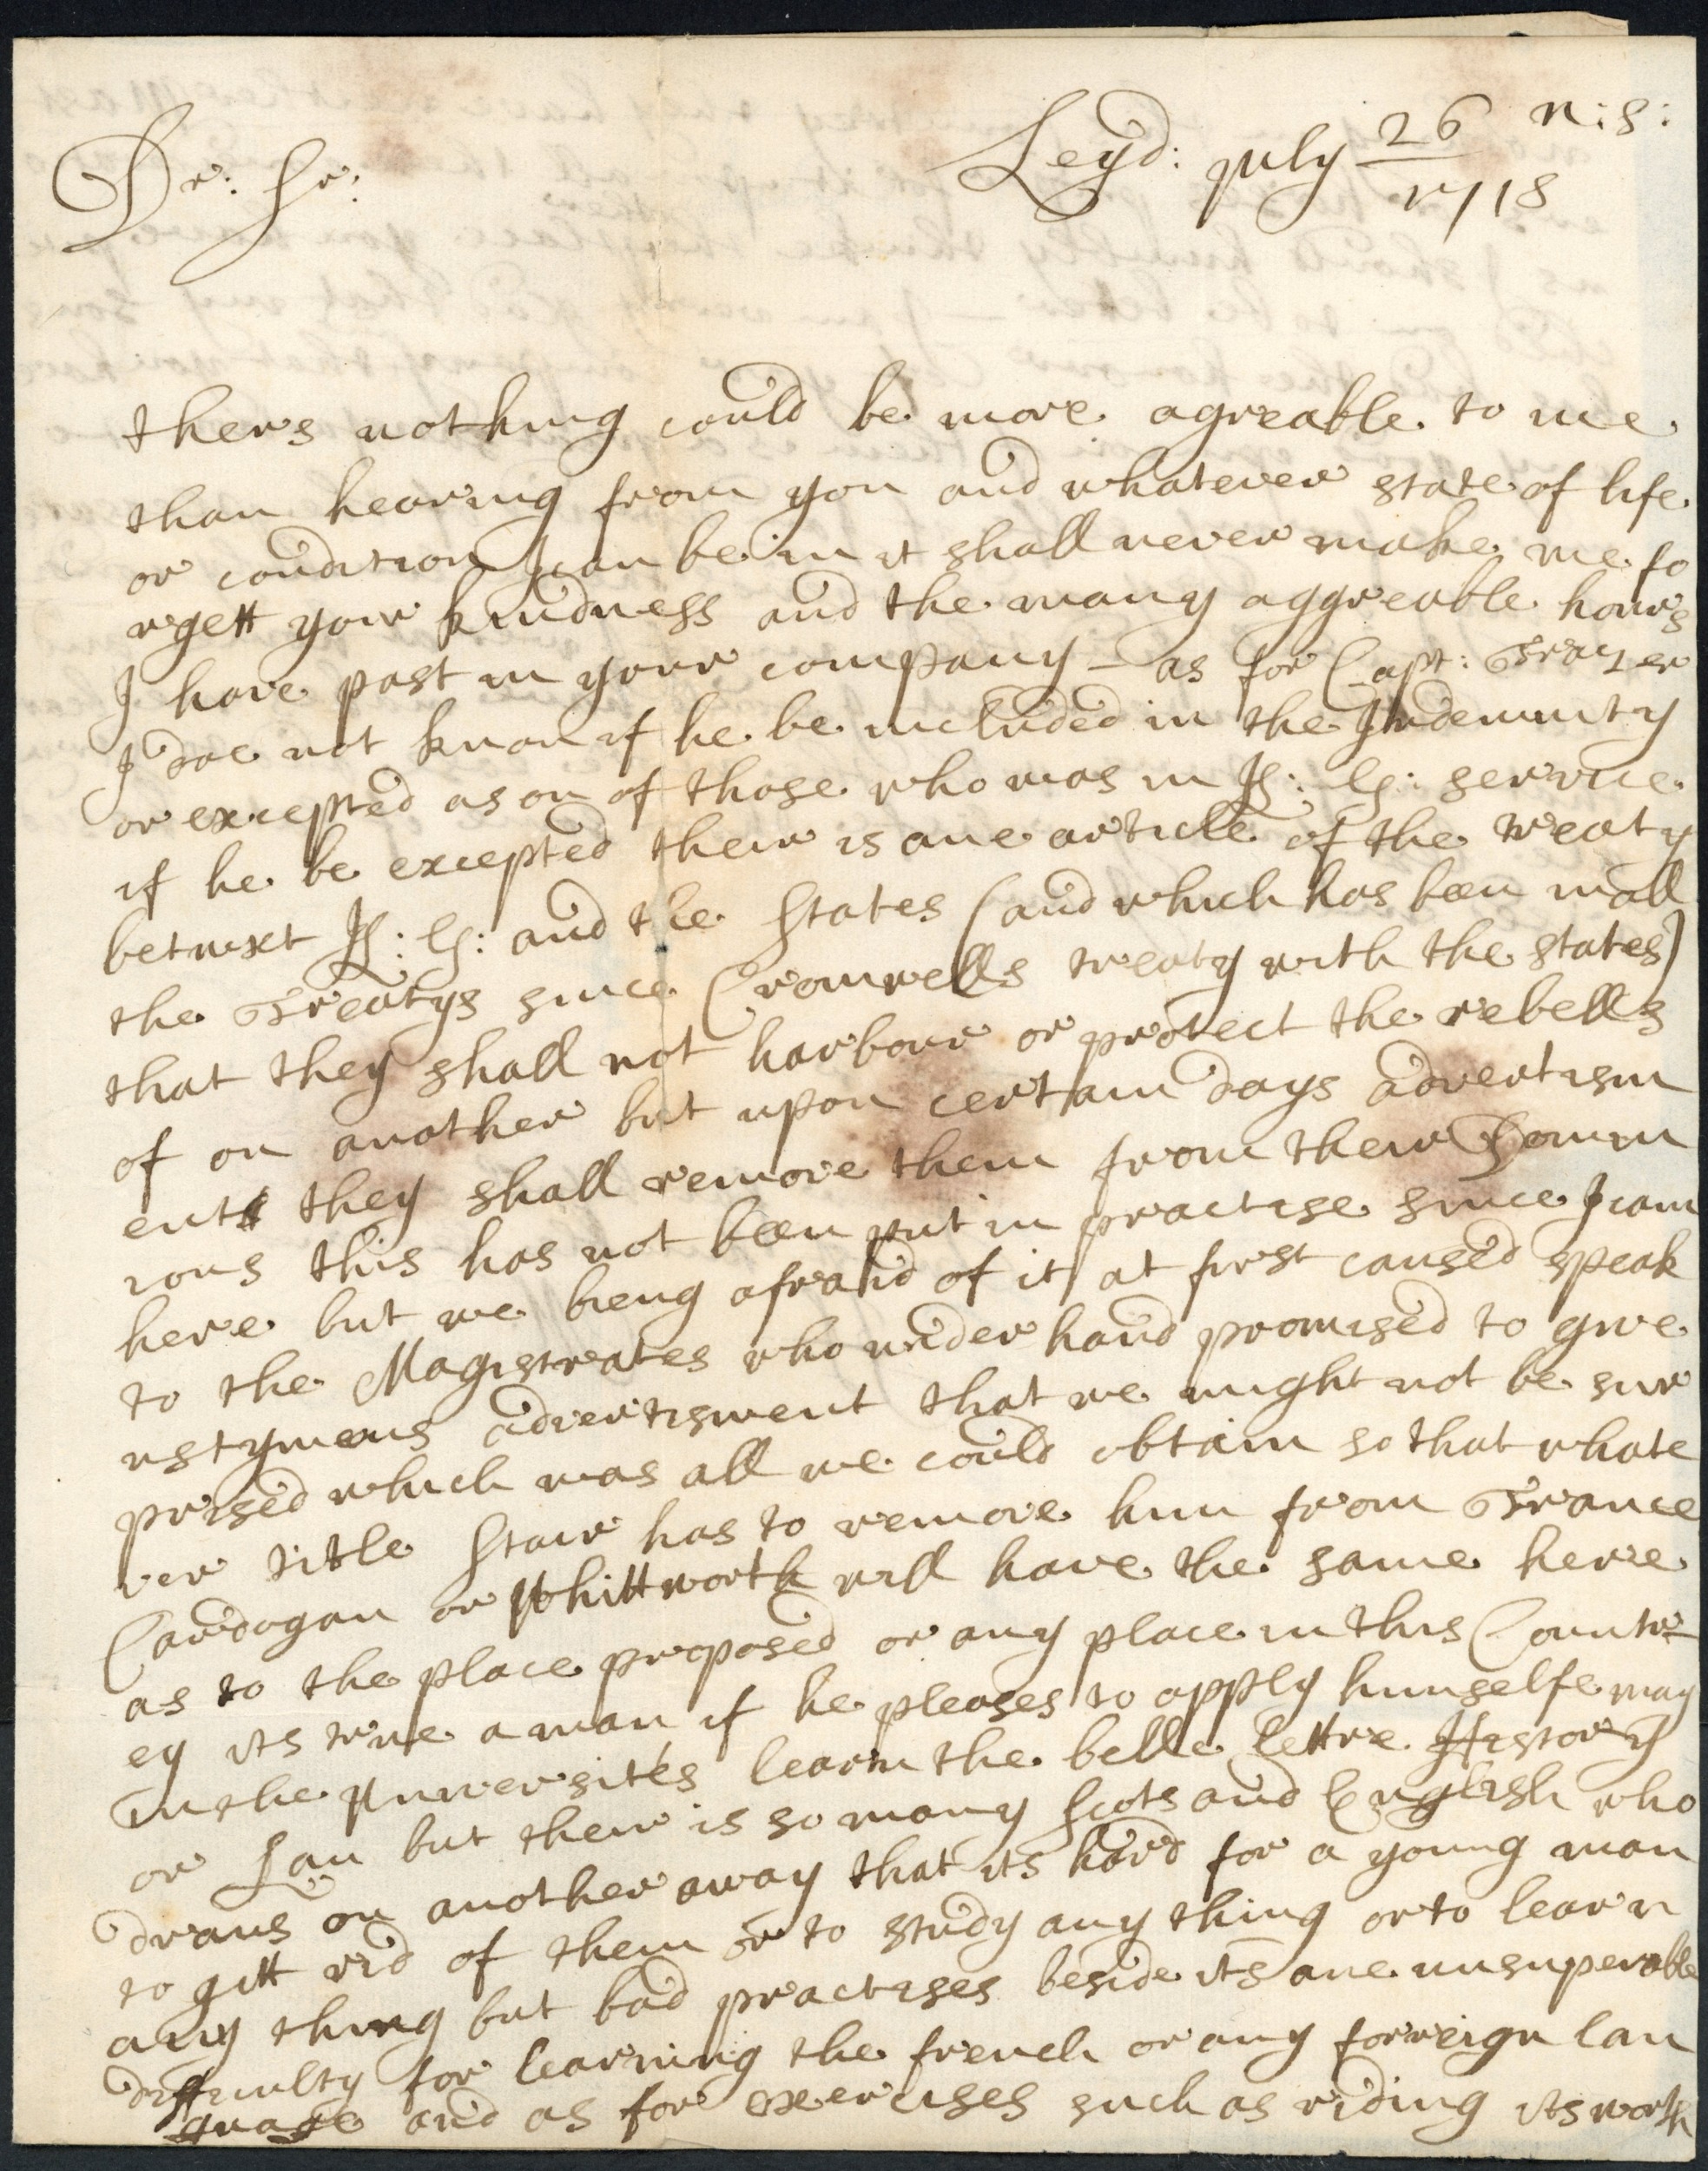 Leyd: july 26 n:s:
1718
Dr: Sr:
thers nothing could be more agreable to me
than hearing from you and whatever state of life
or condition I can be in it shall never make me fo
rgett your kindness and the many aggreable hours
I have past in your company - as for Capt: Fraser
I doe not know if he be included in the Indemnity
or excepted as on of those who was in K: G: service
if he be excepted their is ane article of the treaty
betwixt K: G: and the States (and which has been in all
the Treatys since Cromwells treaty with the states)
that they shall not harbour or protect the rebells
of on another but upon certain days advertism
ent they shall remove them from their Domin
ions this has not been put in practise since I cam
here but we being afraid of it at first caused speak
to the Magistrates who under hand promised to give
us tymeous advertisment that we might not be sur
prised which was all we could obtain so that whate
ver title Stair has to remove him from France
Cardogan or Whittworth will have the same here
as to the place proposed or any place in this Countr
ey its true a man if he pleases to apply himselfe may
in the Universités learn the belle lettre History
or Law but their is so many Scots and English who
draws on another away that its hard for a young man
to gett rid of them or to study any thing or to learn
any thing but bad practises beside its ane unsuperable
difficulty for learning the french or any forreign lan
guage and as for exercises such as riding its worth